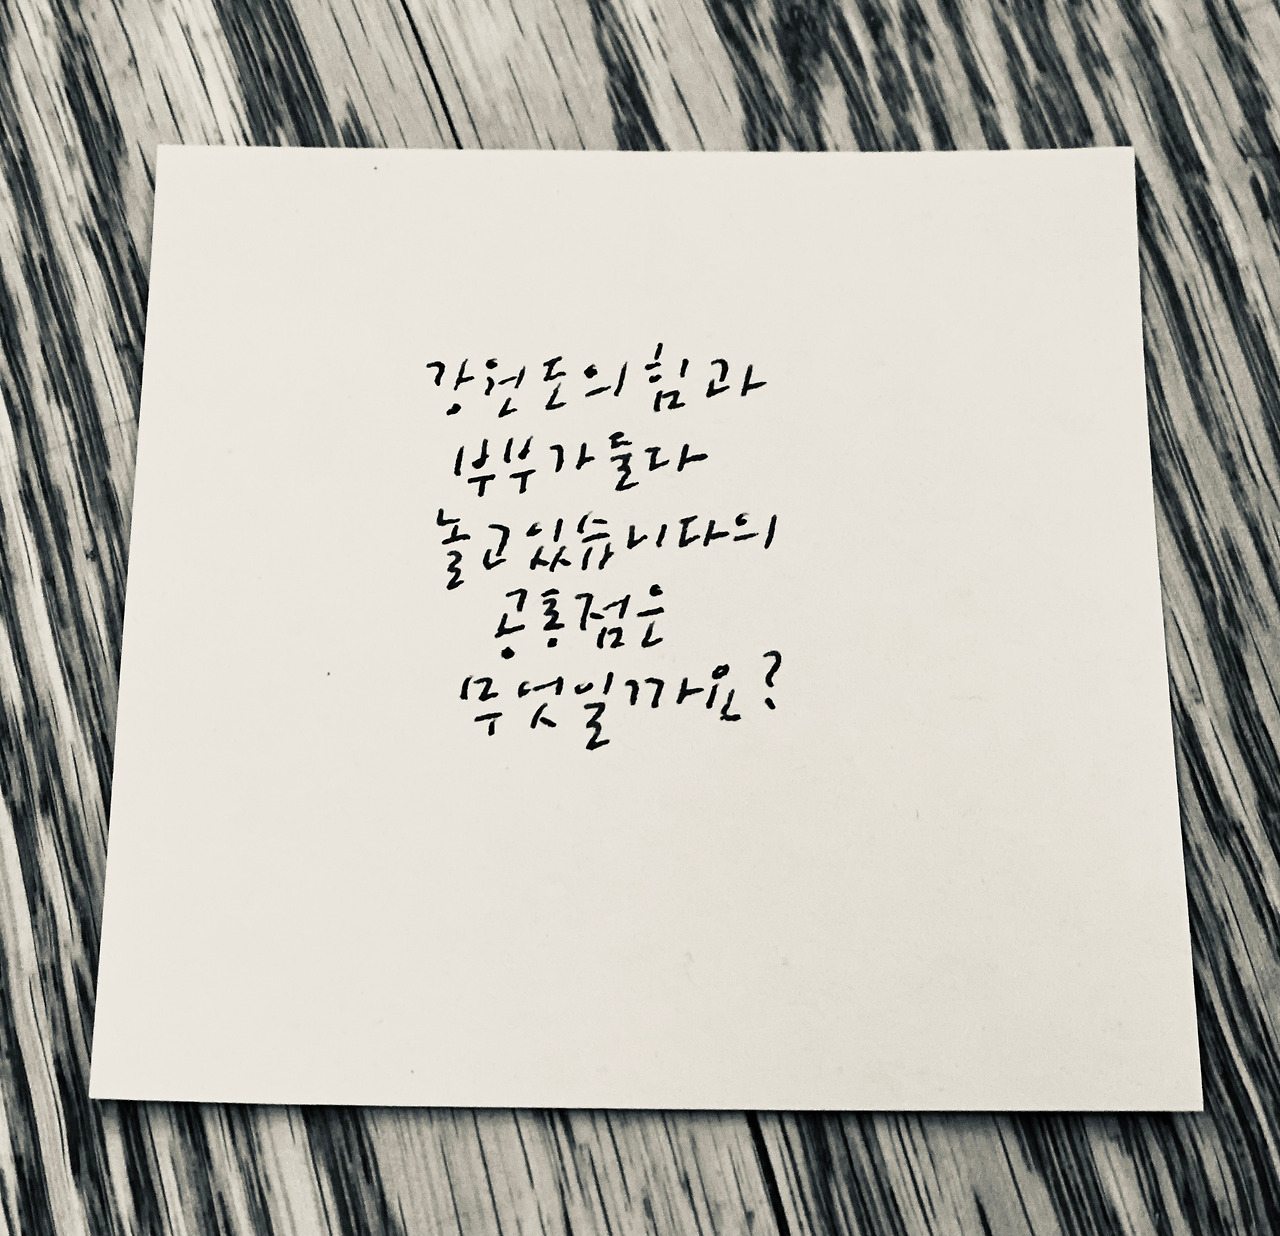 강원도의 힘과
부부가 둘다
놀고있습니다의
공통점은
무엇일까요?